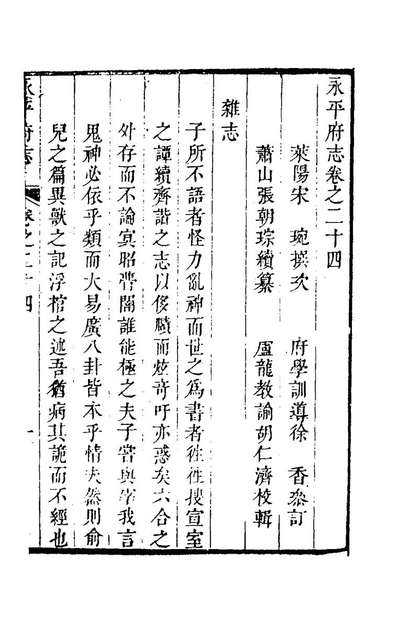 永平府志卷之二十四
萊陽宋　琬撰次　府學訓導徐　香叅訂
蕭山張朝琮續纂　盧龍教諭胡仁濟校輯
雜志
子所不語者怪力亂神而世之爲書者徃徃搜宣室
之譚續齊諧之志以侈贖而炫竒吁亦惑矣六合之
外存而不論冥昭瞢闇誰能極之夫子嘗與宰我言
鬼神必依乎類而大易廣八卦皆本乎情夫然則俞
兒之篇異獸之記浮棺之述吾猶病其詭而不經也
永平府志
卷之二十四
一